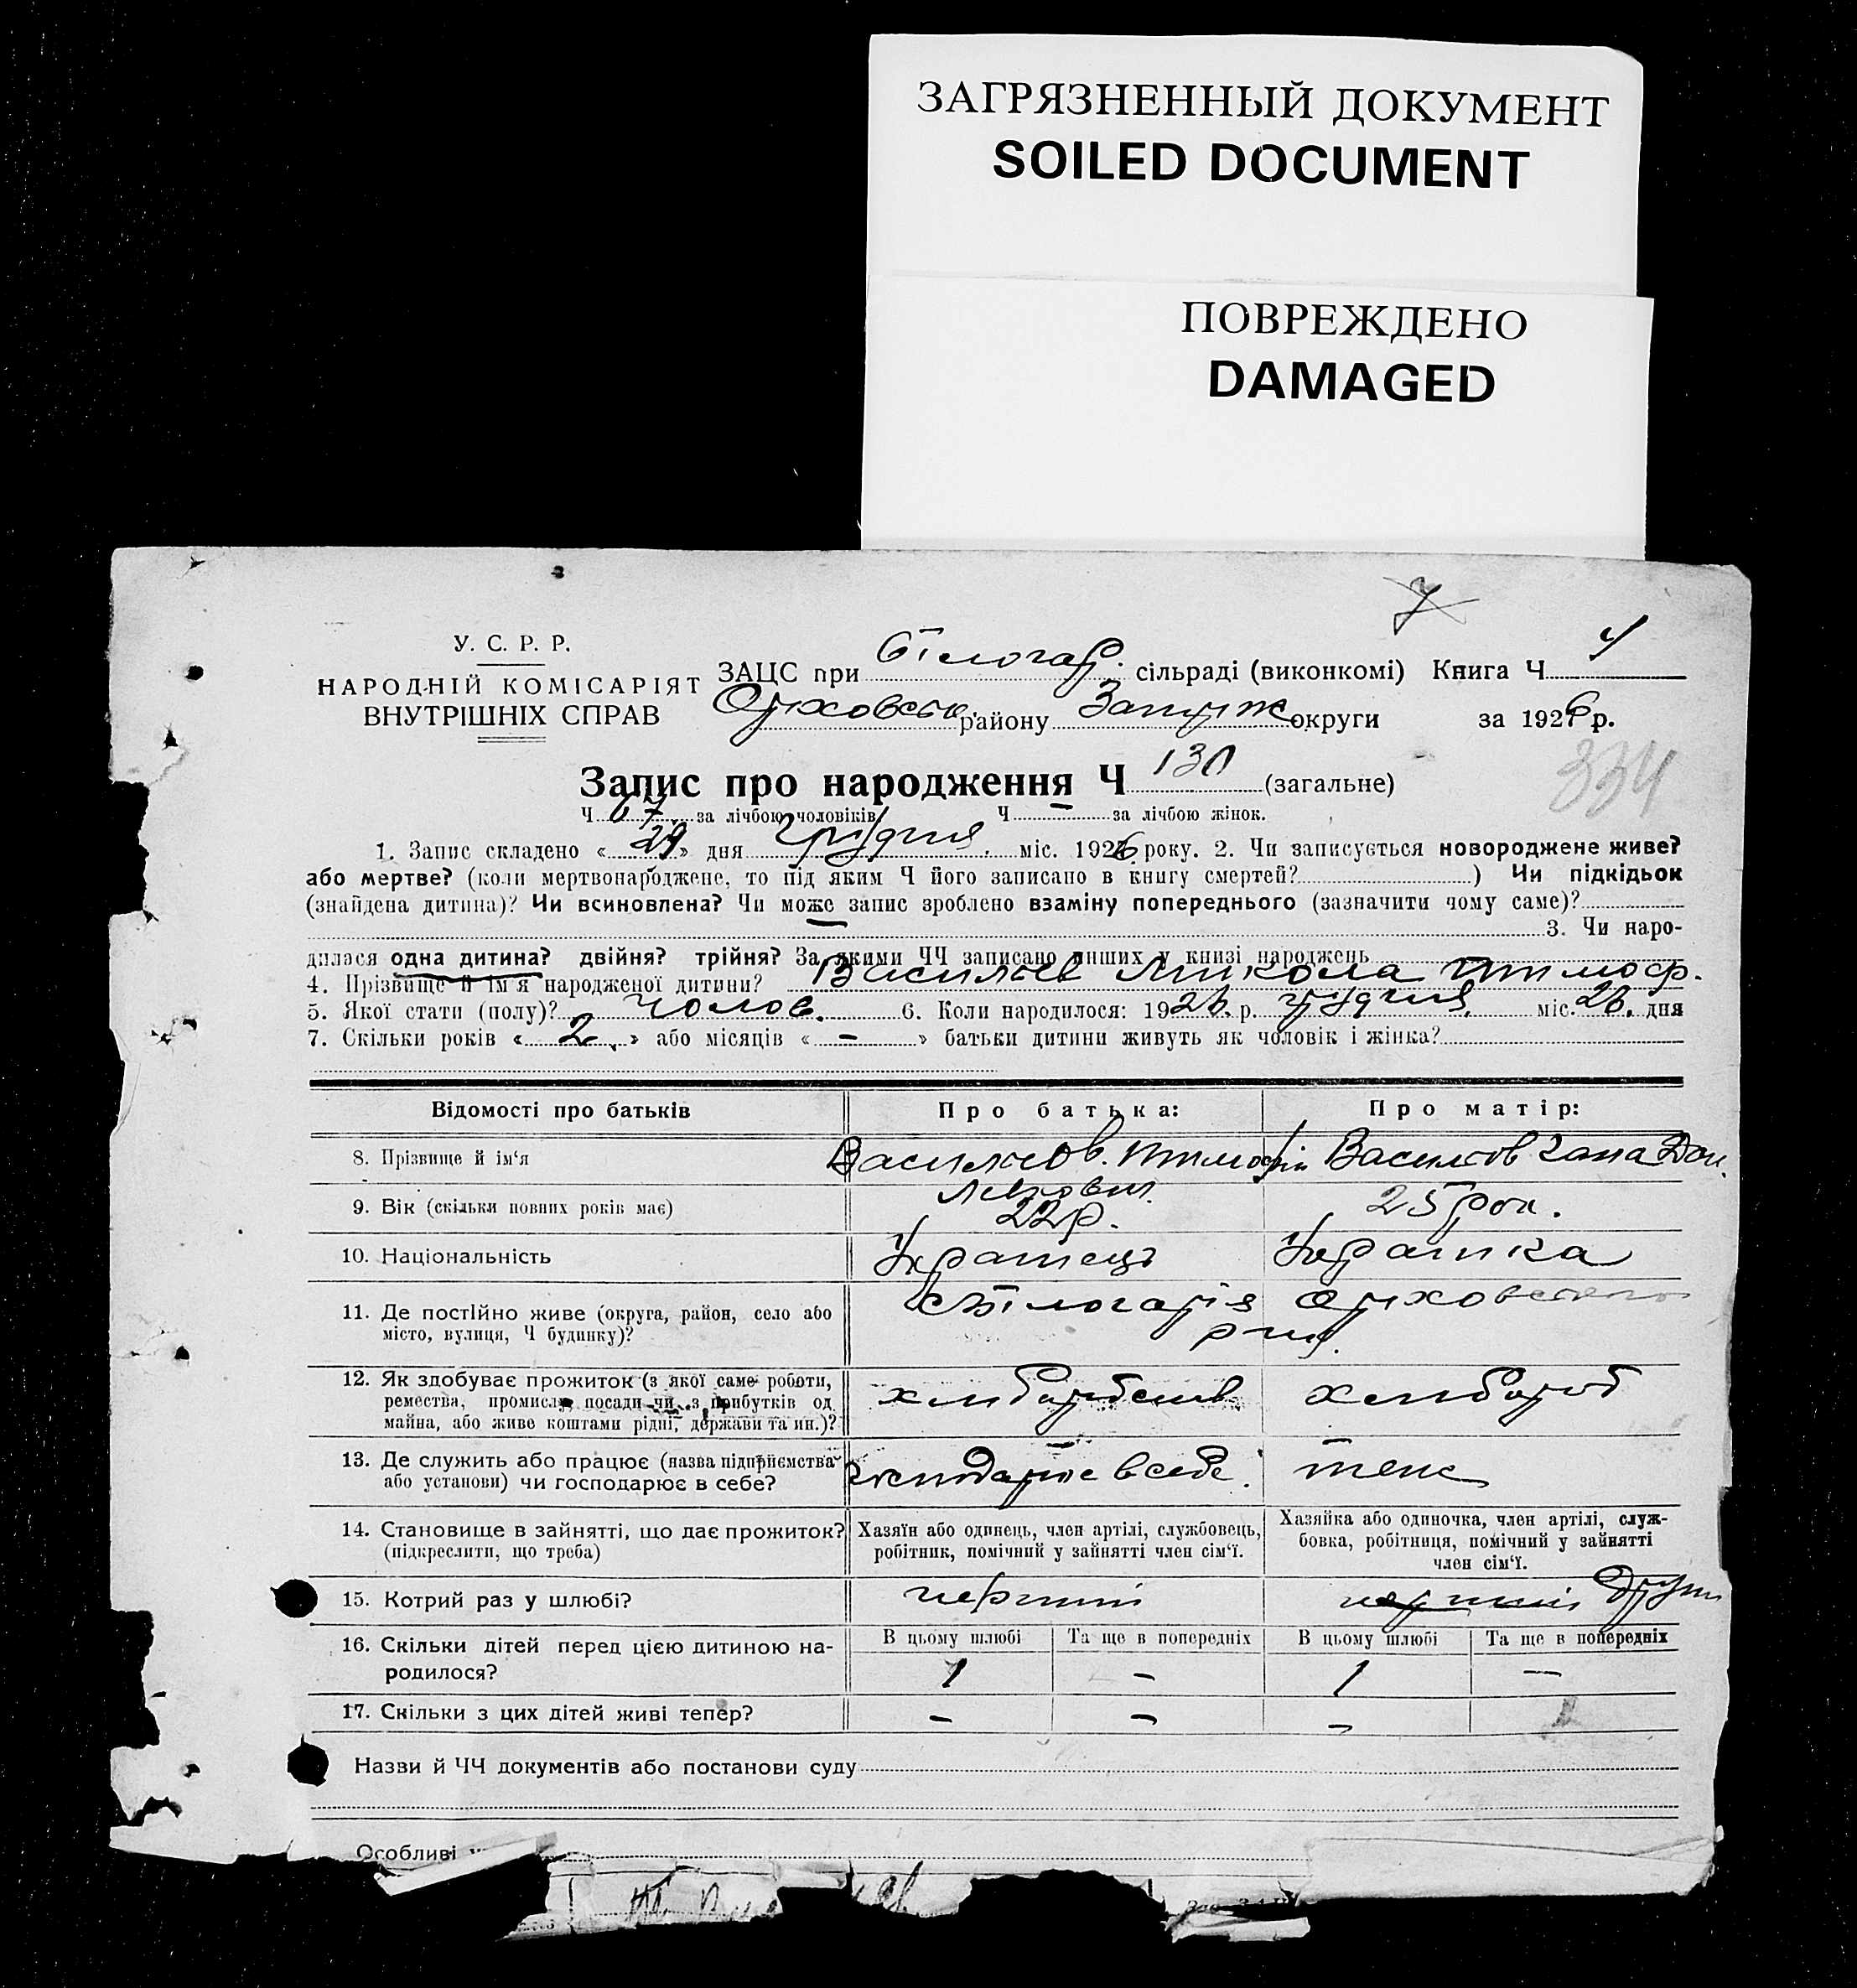 ЗАГРЯЗНЕННЫЙ ДОКУМЕНТ
SOILED DOCUMENT
ПОВРЕЖДЕНО
DAMAGED
7
У. С. Р. Р.
НАРОДНІЙ КОМІСАРІЯТ
ВНУТРІШНІХ СПРАВ
ЗАЦС при Білогар. сільраді (виконкомі) Книга Ч 4
району округи за 1926 р.
334
Запис про народження Ч 130 (загальне)
Ч 67 за лічбою чоловіків Ч – за лічбою жінок.
1. Запис складено « 29 » дня грудня міс. 1926 року. 2. Чи записується новороджене живе?
або мертве? (коли мертвонароджене, то під яким Ч його записано в книгу смертей? ) Чи підкідьок
(знайдена дитина)? Чи всиновлена? Чи може запис зроблено взаміну попереднього (зазначити чому саме)?
– 3. Чи наро-
дилася одна дитина? двійня? трійня? За якими ЧЧ записано инших у книзі народжень
4. Прізвище й ім'я народженої дитини? Васильєв Микола Тимоф.
5. Якої стати (полу)? чолов. 6. Коли народилося: 1926 р. грудня міс. 26. дня
7. Скільки років « 2 » або місяців « – » батьки дитини живуть як чоловік і жінка?
Відомості про батьків Про батька: Про матір:
8. Прізвище й ім'я Васильєв. Тимофій Васильєв
9. Вік (скільки повних років має) 22 р. 25 рок.
10. Національність Українець Українка
11. Де постійно живе (округа, район, село або
місто, вулиця, Ч будинку)? Білогарія Оріховського
12. Як здобуває прожиток (з якої саме роботи,
ремества, промислу, посади чи з прибутків од
майна, або живе коштами рідні, держави та ин.)?
13. Де служить або працює (назва підприємства
або установи) чи господарює в себе? господарює в себе. теж
14. Становище в зайнятті, що дає прожиток?
(підкреслити, що треба)
Хазяїн або одинець, член артілі, службовець,
робітник, помічний у зайнятті член сім'ї.
Хазяйка або одиночка, член артілі, служ-
бовка, робітниця, помічний у зайнятті
член сім'ї.
15. Котрий раз у шлюбі? перший перший други
16. Скільки дітей перед цією дитиною на-
родилося?
В цьому шлюбі Та ще в попередніх В цьому шлюбі Та ще в попередніх
1 – 1 –
17. Скільки з цих дітей живі тепер? – – –
Назви й ЧЧ документів або постанови суду
Особливі